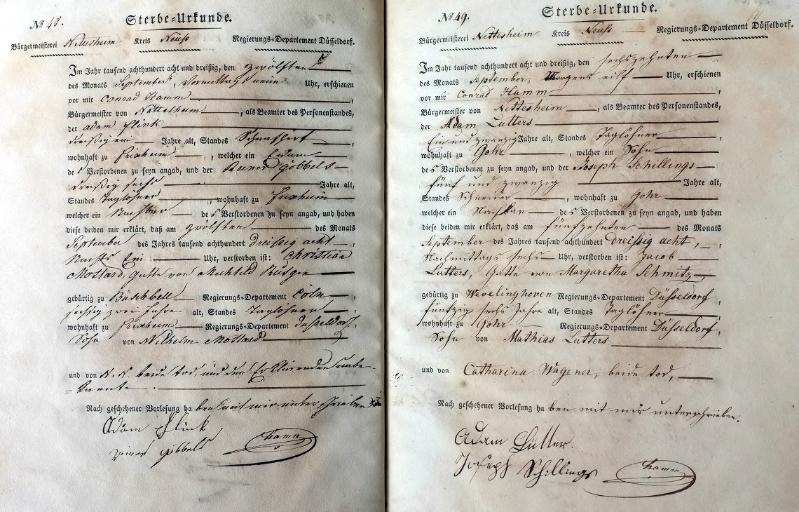 No 48.
Sterbe-Urkunde.
Bürgermeisterei Nettesheim Kreis Neuß Regierungs-Departement Düsseldorf.
Im Jahr tausend achthundert acht und dreißig, den zwölften
des Monats September, Vormittags neun Uhr, erschienen
vor mir Conrad Hamm
Bürgermeister von Nettesheim, als Beamter des Personenstandes,
der Adam Flink
dreißig Jahre alt, Standes
wohnhaft zu Frixheim, welcher ein
des Verstorbenen zu seyn angab, und der Göbbels
dreißig sechs Jahre alt,
Standes Taglöhner, wohnhaft zu Frixheim
welcher ein Nachbar des Verstorbenen zu seyn angab, und haben
diese beiden mir erklärt, daß am zwölften des Monats
September des Jahres tausend achthundert dreißig acht,
Uhr, verstorben ist: Christian
Mostard, Gatte von Mechtild
gebürtig zu Büschbell Regierungs-Departement Cöln
sechzig zwei Jahre alt, Standes Taglöhner
wohnhaft zu Frixheim Regierungs-Departement Düsseldorf,
Sohn von Wilhelm Mostard
und von N. N. beide tod und den Erklärenden unbe-
kannte
Nach geschehener Vorlesung haben mit mir unterschrieben
Adam Flück
göbbels
Hamm
No 49.
Sterbe-Urkunde.
Bürgermeisterei Nettesheim Kreis Neuß Regierungs-Departement Düsseldorf.
Im Jahr tausend achthundert acht und dreißig, den sechszehnten
des Monats September, Morgens eilf Uhr, erschienen
vor mir Conrad Hamm
Bürgermeister von Nettesheim, als Beamter des Personenstandes,
der Adam Lutters
Ein und zwanzig Jahre alt, Standes Taglöhner
wohnhaft zu Gohr, welcher ein Sohn
des Verstorbenen zu seyn angab, und der Joseph Schillings
fünf und zwanzig Jahre alt,
Standes Schneider, wohnhaft zu Gohr
welcher ein Nachbar des Verstorbenen zu seyn angab, und haben
diese beiden mir erklärt, daß am fünfzehnten des Monats
September des Jahres tausend achthundert dreißig acht,
Nachmittags sechs Uhr, verstorben ist: Jacob
Lutters, Gatte von Margaretha Schmitz
gebürtig zu Wevelinghoven Regierungs-Departement Düsseldorf,
fünfzig sechs Jahre alt, Standes Taglöhner
wohnhaft zu Gohr Regierungs-Departement Düsseldorf,
Sohn von Mathias Lutters
und von Catharina Wagener, beide tod,
Nach geschehener Vorlesung haben mit mir unterschrieben.
Adam Lutter
Joseph Schillings
Hamm